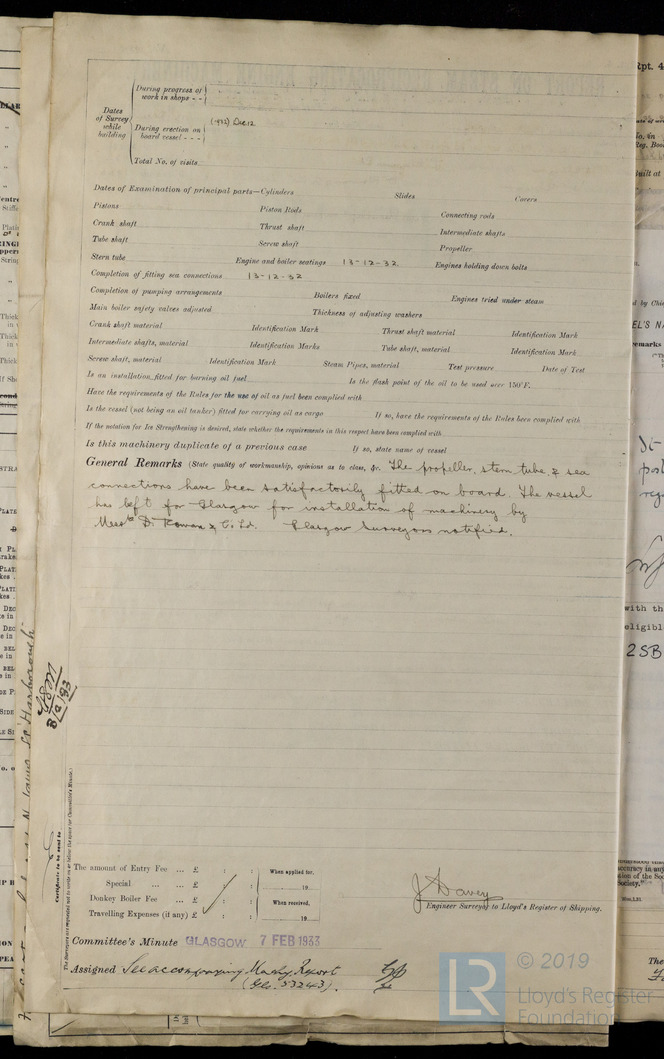 During progress of
work in shops - -
Dates
of Survey
while
building
During erection on
board vessel - - -
(1932) Dec. 12
Total No. of visits
Dates of Examination of principal parts—Cylinders Slides Covers
Pistons Piston Rods Connecting rods
Crank shaft Thrust shaft Intermediate shafts
Tube shaft Screw shaft Propeller
Stern tube Engine and boiler seatings 13-12-32 Engines holding down bolts
Completion of fitting sea connections 13-12-32
Completion of pumping arrangements Boilers fixed Engines tried under steam
Main boiler safety valves adjusted Thickness of adjusting washers
Crank shaft material Identification Mark Thrust shaft material Identification Mark
Intermediate shafts, material Identification Marks Tube shaft, material Identification Mark
Screw shaft, material Identification Mark Steam Pipes, material Test pressure Date of Test
Is an installation fitted for burning oil fuel Is the flash point of the oil to be used over 150°F.
Have the requirements of the Rules for the use of oil as fuel been complied with
Is the vessel (not being an oil tanker) fitted for carrying oil as cargo If so, have the requirements of the Rules been complied with
If the notation for Ice Strengthening is desired, state whether the requirements in this respect have been complied with
Is this machinery duplicate of a previous case If so, state name of vessel
General Remarks (State quality of workmanship, opinions as to class, &c. The propeller, stern tube, & sea
connections have been satisfactorily fitted on board. The vessel
has left for Glasgow for installation of machinery by
Messrs D. Rowan & Co. Ld. Glasgow Surveyors notified.
The amount of Entry Fee ... £ : : When applied for,
Special ... ... £ : : 19
Donkey Boiler Fee ... £ : : When received,
Travelling Expenses (if any) £ : : 19
J Davey
Engineer Surveyor to Lloyd's Register of Shipping.
Committee's Minute GLASGOW 7 FEB 1933
Assigned See accompanying Machy Report
(Gls. 53243).
Certificate to be sent to
LR
© 2019
Lloyd's Register
Foundation
Rpt. 4
with th
eligibl
2SB